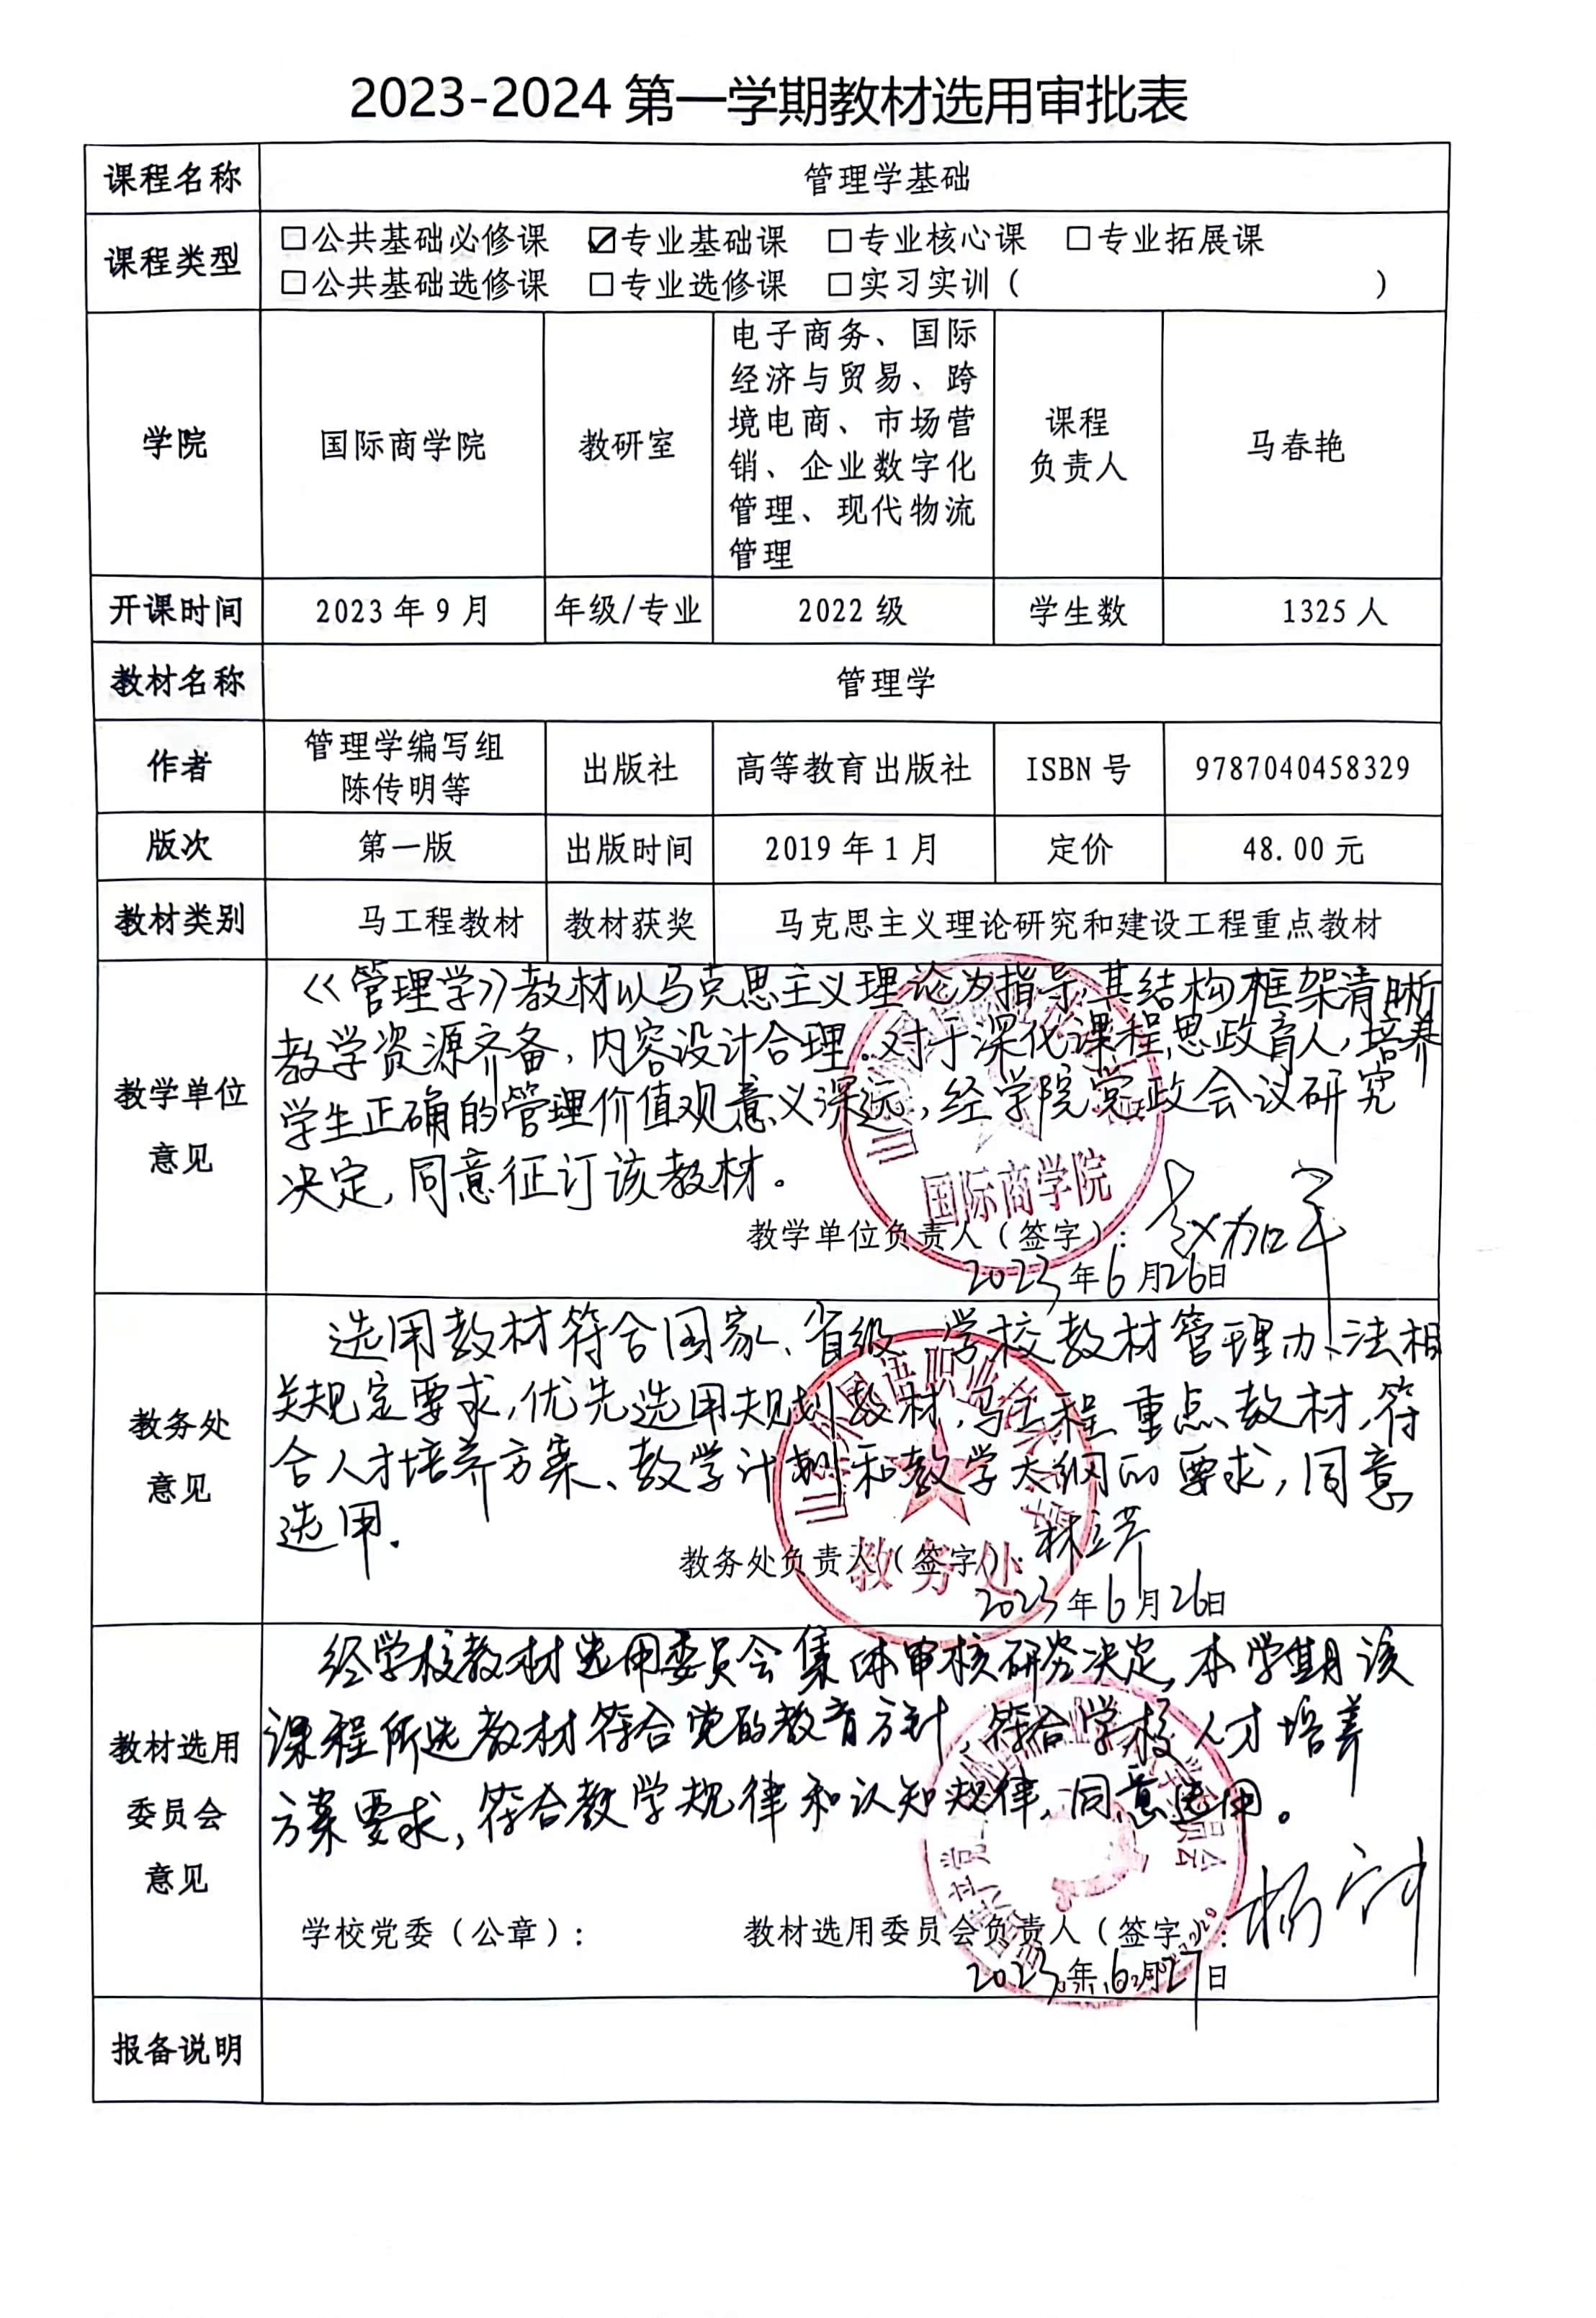 2023-2024 第一学期教材选用审批表
课程名称 管理学基础
课程类型 □公共基础必修课 ☑专业基础课 □专业核心课 □专业拓展课
□公共基础选修课 □专业选修课 □实习实训（ ）
学院 国际商学院 教研室
电子商务、国际
经济与贸易、跨
境电商、市场营
销、企业数字化
管理、现代物流
管理
课程
负责人
马春艳
开课时间 2023 年 9 月 年级/专业 2022 级 学生数 1325 人
教材名称 管理学
作者
管理学编写组
陈传明等
出版社 高等教育出版社 ISBN 号 9787040458329
版次 第一版 出版时间 2019 年 1 月 定价 48.00 元
教材类别 马工程教材 教材获奖 马克思主义理论研究和建设工程重点教材
教学单位
意见
《管理学》教材以马克思主义理论为指导,其结构框架清晰
教学资源齐备,内容设计合理。对于深化课程思政育人,培养
学生正确的管理价值观意义深远,经学院党政会议研究
决定,同意征订该教材。
国际商学院
教学单位负责人（签字）：
2023年6月26日
教务处
意见
选用教材符合国家、省级、学校教材管理办法相
关规定要求,优先选用规划教材,马工程重点教材,符
合人才培养方案、教学计划和教学大纲的要求,同意
选用.
教务处
教务处负责人（签字）：
2023年6月26日
教材选用
委员会
意见
经学校教材选用委员会集体审核研究决定,本学期该
课程所选教材符合党的教育方针,符合学校人才培养
方案要求,符合教学规律和认知规律,同意选用。
学校党委（公章）： 教材选用委员会负责人（签字）：
2023年6月27日
报备说明